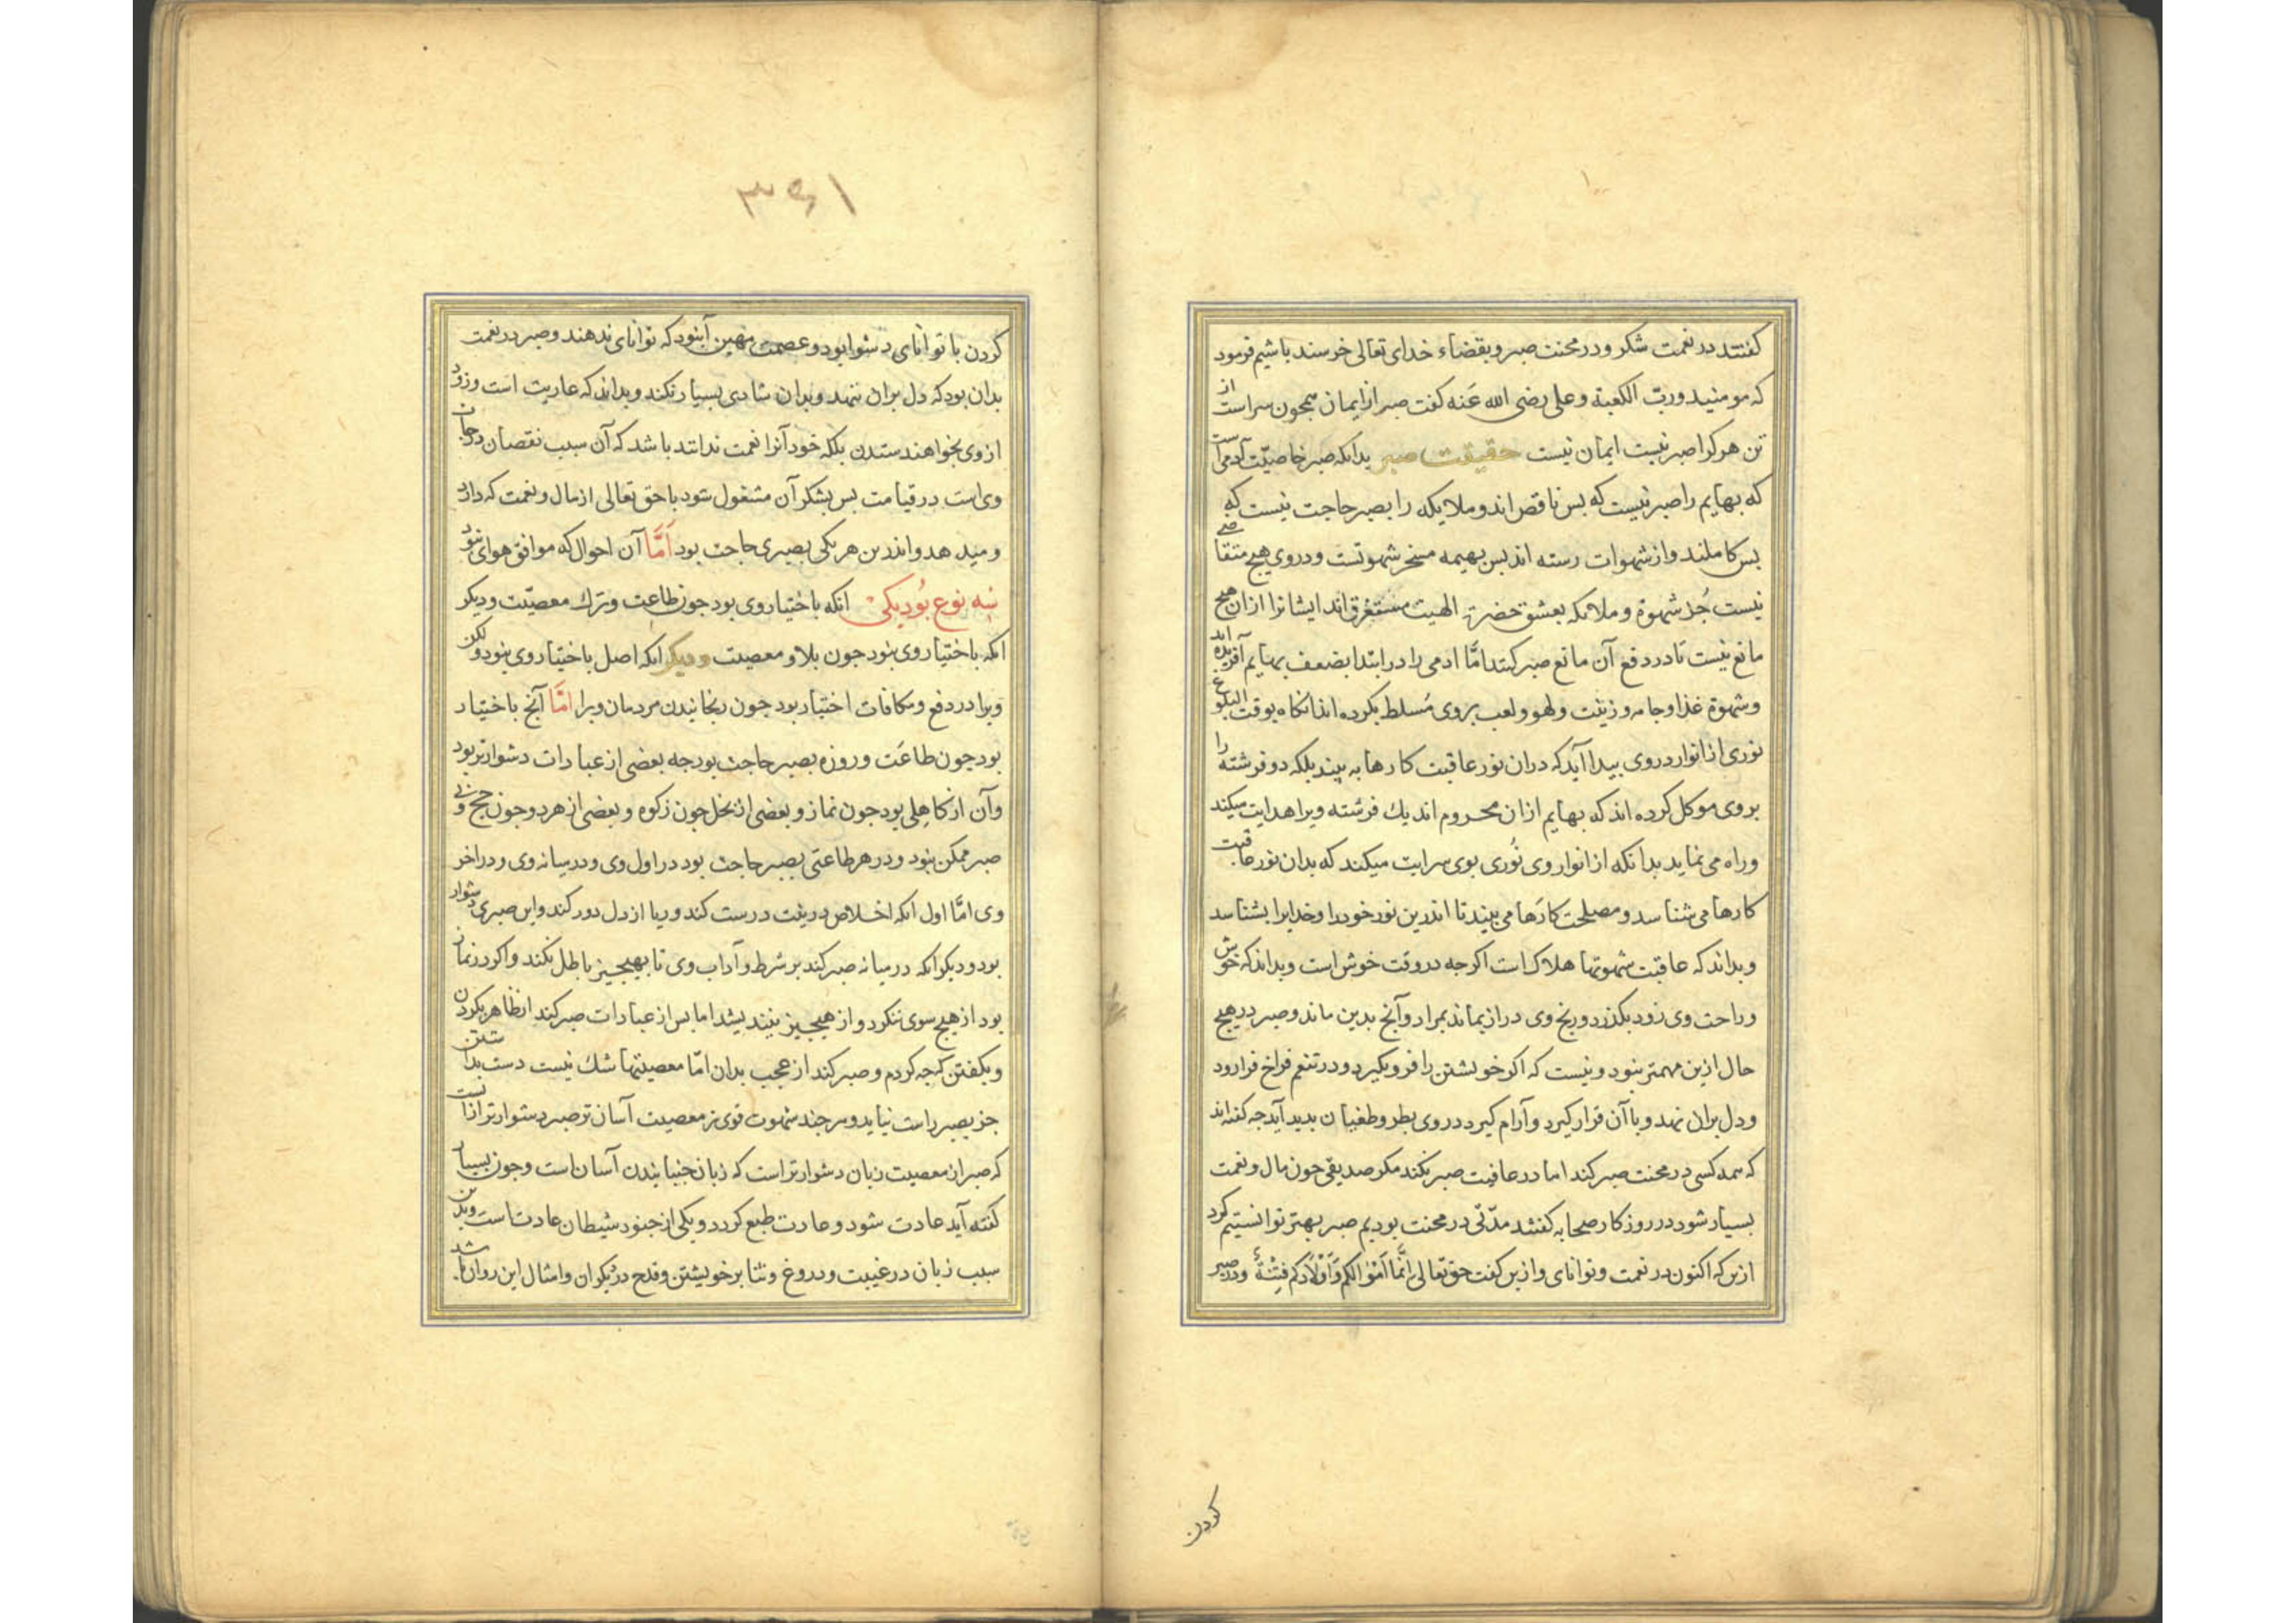 کفتند در نعمت شکر و در محنت صبر و بقضاء خدای تعالی خرسند باشیم فرمود
که مومنید و ربّ الکعبة و علی رضی الله عَنه کفت صبر از ایمان همچون سراست از
تن هرکرا صبر نیست ایمان نیست حقیقت صبر بدانکه صبر خاصیّت آدمی است
که بهایم را صبر نیست که بس ناقص اند و ملایکه را بصبر حاجت نیست که
بس کاملند و از شهوات رسته اند بس بهیمه مسخر شهوتست و در وی هیچ متقاضی
نیست جُز شهوة و ملائکه بعشق حضرت الهیت مستغرق اند ایشانرا ازان هیچ
مانع نیست تا در دفع آن مانع صبر کنند امّا ادمی را در ابتدا بضعف بهایم آفریده اند
و شهوة غذا و جامه و زینت و لهو و لعب بر وی مُسلط بکرده اند انکاه بوقت البلوغ
نوری از انوار در وی بیدا آید که دران نور عاقبت کارها به بیند بلکه دو فرشته را
بر وی موکل کرده اند که بهایم ازان محروم اند یك فرشته ویرا هدایت میکند
و راه می نماید بدانکه از انوار وی نُوری بوی سرایت میکند که بدان نور عاقبت
کارها می شناسد و مصلحت کارها می بیند تا اندرین نور خود را و خدایرا بشناسد
و بداند که عاقبت شهوتها هلاک است اکرجه در وقت خوش است و بداند که خوشی
و راحت وی زود بکذرد و رنج وی دراز بماند بمراد و آنج بدین ماند و صبر در هیچ
حال ازین مهمتر نبود و نیست که اکر خویشتن را فرو بکیرد و در تنعم فراخ فرا رود
و دل بران نهد و با آن قرار کیرد و آرام کیرد در وی بطر و طغیان بدید آید جه کفته اند
که همه کسی در محنت صبر کند اما در عافیت صبر نکند مکر صدیقی جون مال و نعمت
بسیار شود در روزکار صحابه کفتند مدّتی در محنت بودیم صبر بهتر توانستیم کرد
ازین که اکنون در نعمت و توانای و ازین کفت حق تعالی اِنَّما اَمْوالکم وَاَوْلاَدکم فِتْنَةٌ و در صبر
کردن
۳۶۱
کردن با توانای دشوار بود و عصمت مهین آنبود که توانای ندهند و صبر در نعمت
بدان بود که دل بران ننهد و بدان شادی بسیار نکند و بداند که عاریت است و زود
از وی بخواهند ستدن بلکه خود آنرا نعمت ندانند باشد که آن سبب نقصان درجات
وی است در قیامت بس بشکر آن مشغول شود با حق تعالی از مال و نعمت که دارد
و میدهد و اندرین هر یکی بصبری حاجت بود اَمَّا آن احوال که موافق هوای نبود
بسه نوع بُود یکی انکه باختیار وی بود جون طاعت و ترك معصیّت و دیکر
انکه باختیار وی نبود جون بلا و معصیت و دیکر انکه اصل باختیار وی نبود ولکن
ویرا در دفع و مکافات اختیار بود جون رنجانیدن مردمان ویرا امَّا آنج باختیار
بود جون طاعَت و روزه بصبر حاجت بود جه بعضی از عبادات دشوارتر بود
وآن از کاهِلی بود جون نماز و بعضی از بخل جون زکوه و بعضی از هر دو جون حج و بی
صبر ممکن نبود و در هر طاعتی بصبر حاجت بود در اول وی و در میانه وی و در اخر
وی امّا اول انکه اخلاص در نیت درست کند و ریا از دل دور کند و این صبری دشوار
بود و دیکر انکه در میانه صبر کند بر شرط و آداب وی تا بهیچ چیز باطل نکند و اکر در نماز
بود از هیچ سوی ننکرد و از هیچ چیز نیندیشد اما بس از عبادات صبر کند از ظاهر بکردن
و بکفتن که جه کردم و صبر کند از عجب بدان امّا معصیتها شك نیست دست بداشتن
جز بصبر راست نیاید و هر جند شهوت قوی تر معصیت آسان تر صبر دشوارتر ازانست
که صبر از معصیت زبان دشوارتر است که زبان جنبانیدن آسان است و جون بسیار
کفته آید عادت شود و عادت طبع کردد و یکی از جنود شیطان عادت است و بدین
سبب زبان در غیبت و دروغ و ثنا بر خویشتن و قدح دیکران و امثال این روان باشد